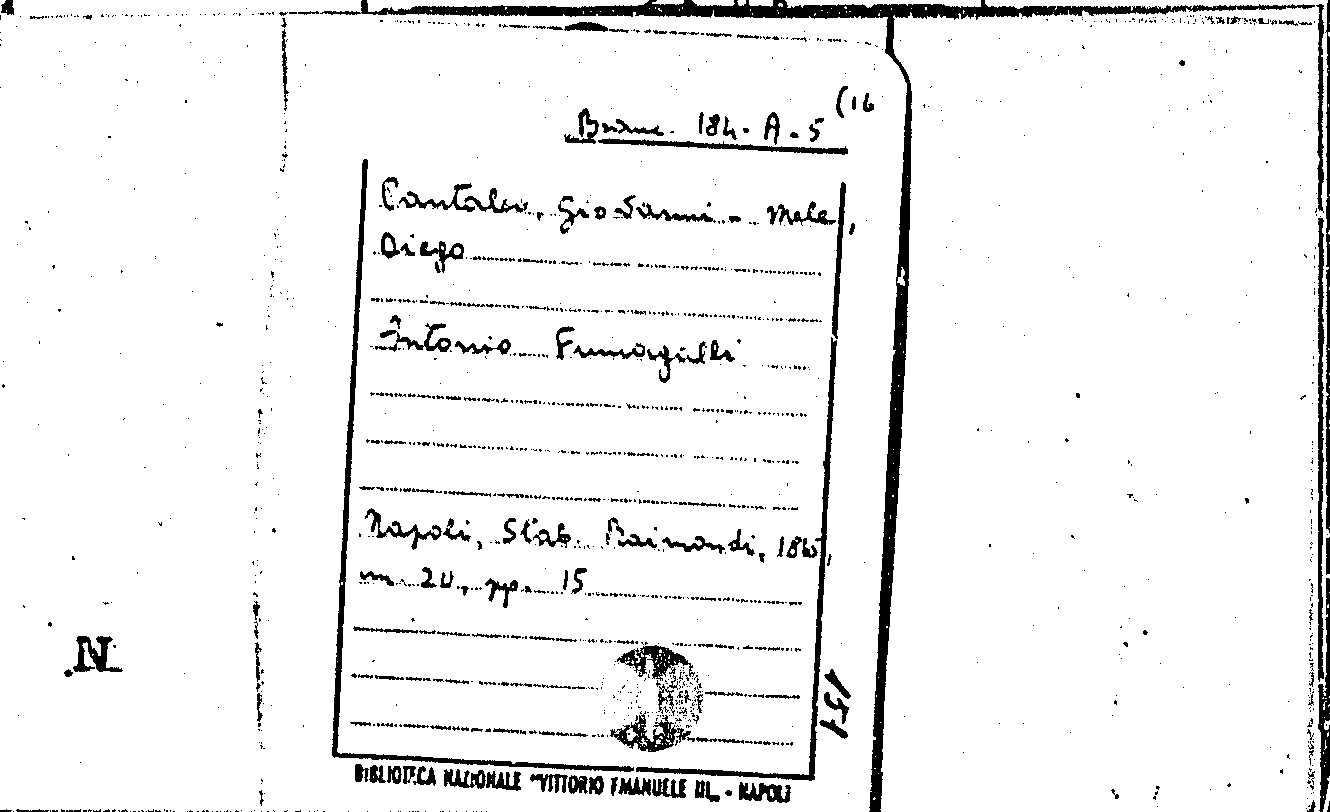 (16
184. A. 5
Cantalu, Giovanni - Mele,
Diego
Antonio Fumagulli
Napoli, Stab. Raimondi,
in. 20, pp. 15
151
N
BIBLIOTECA NAZIONALE "VITTORIO EMANUELE III„ - NAPOLI